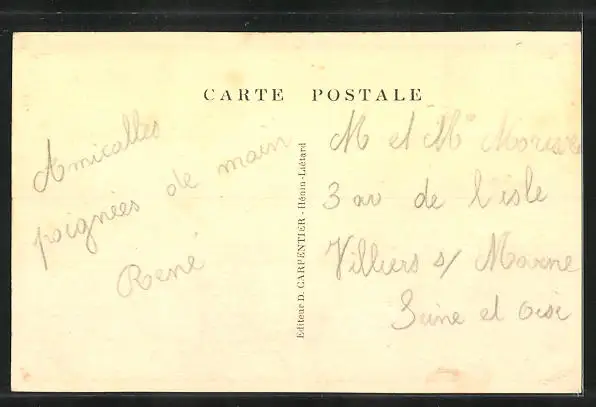 CARTE POSTALE
Amicalles
poignées de main
René
Editeur D. CARPENTIER - Hénin-Liétard
M et Me
3 av de l'isle
Villiers s/ Marne
Seine et Oise